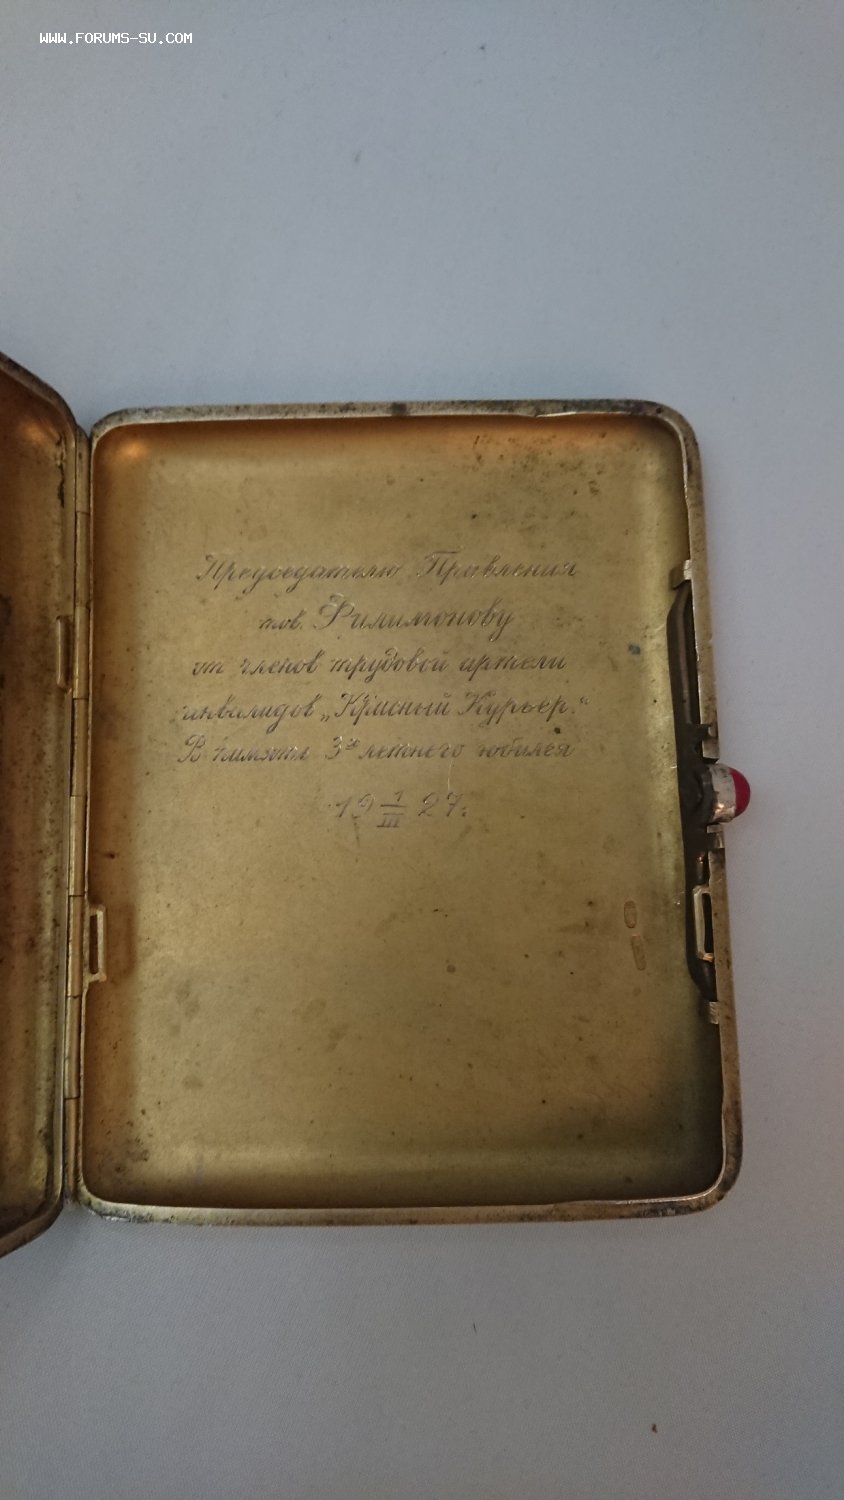 WWW.FORUMS-SU.COM
Председателю Правления
тов. Филимонову
от членов трудовой артели
инвалидов „Красный Курьер."
В память 3х летнего юбилея
19 1/III 27.